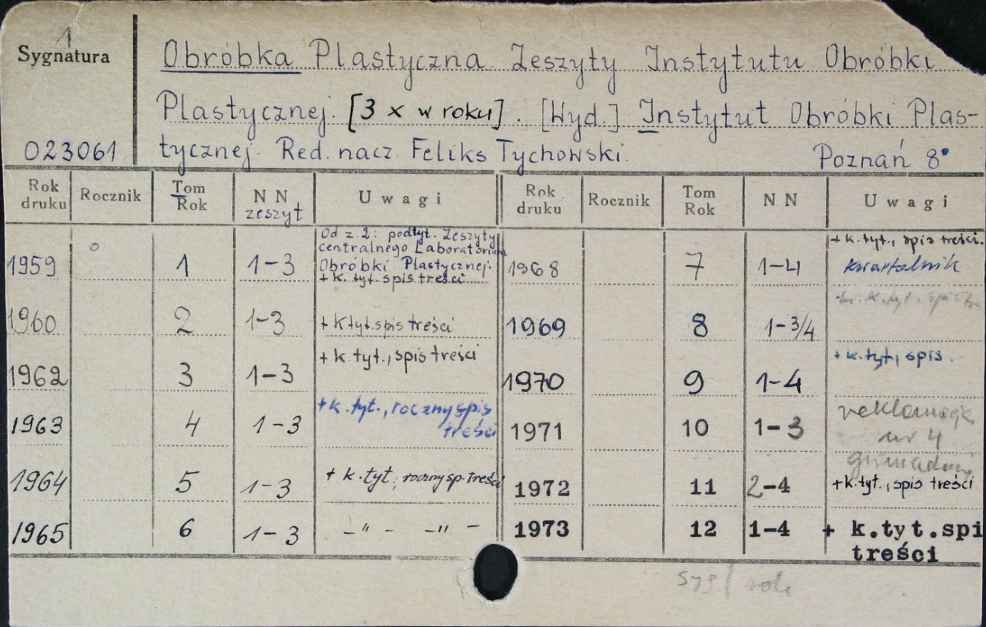 1
Sygnatura
023061
Obróbka Plastyczna Zeszyty Instytutu Obróbki
Plastycznej. [3 x w roku]. [Wyd.] Instytut Obróbki Plas-
tycznej. Red. nacz. Feliks Tychowski. Poznań 8°
Rok druku Rocznik Tom Rok N N zeszyt Uwagi Rok druku Rocznik Tom Rok N N Uwagi
1959 1 1-3 Od z. 2: podtyt. Zeszyty
centralnego Laboratorium
Obróbki Plastycznej.
+ k. tyt. spis treści
1960 2 1-3 + k tyt. spis treści
1962 3 1-3 + k. tyt., spis treści
1963 4 1-3 + k. tyt., roczny spis
treści
1964 5 1-3 + k. tyt., roczny sp. treści
1965 6 1-3 -"- -"-
1968 7 1-4 + k. tyt., spis treści.
kwartalnik
1969 8 1-3/4 k. tyt. spis
1970 9 1-4 + k. tyt., spis.
1971 10 1-3
nr 4
1972 11 2-4 + k. tyt., spis treści
1973 12 1-4 + k. tyt. spi
treści